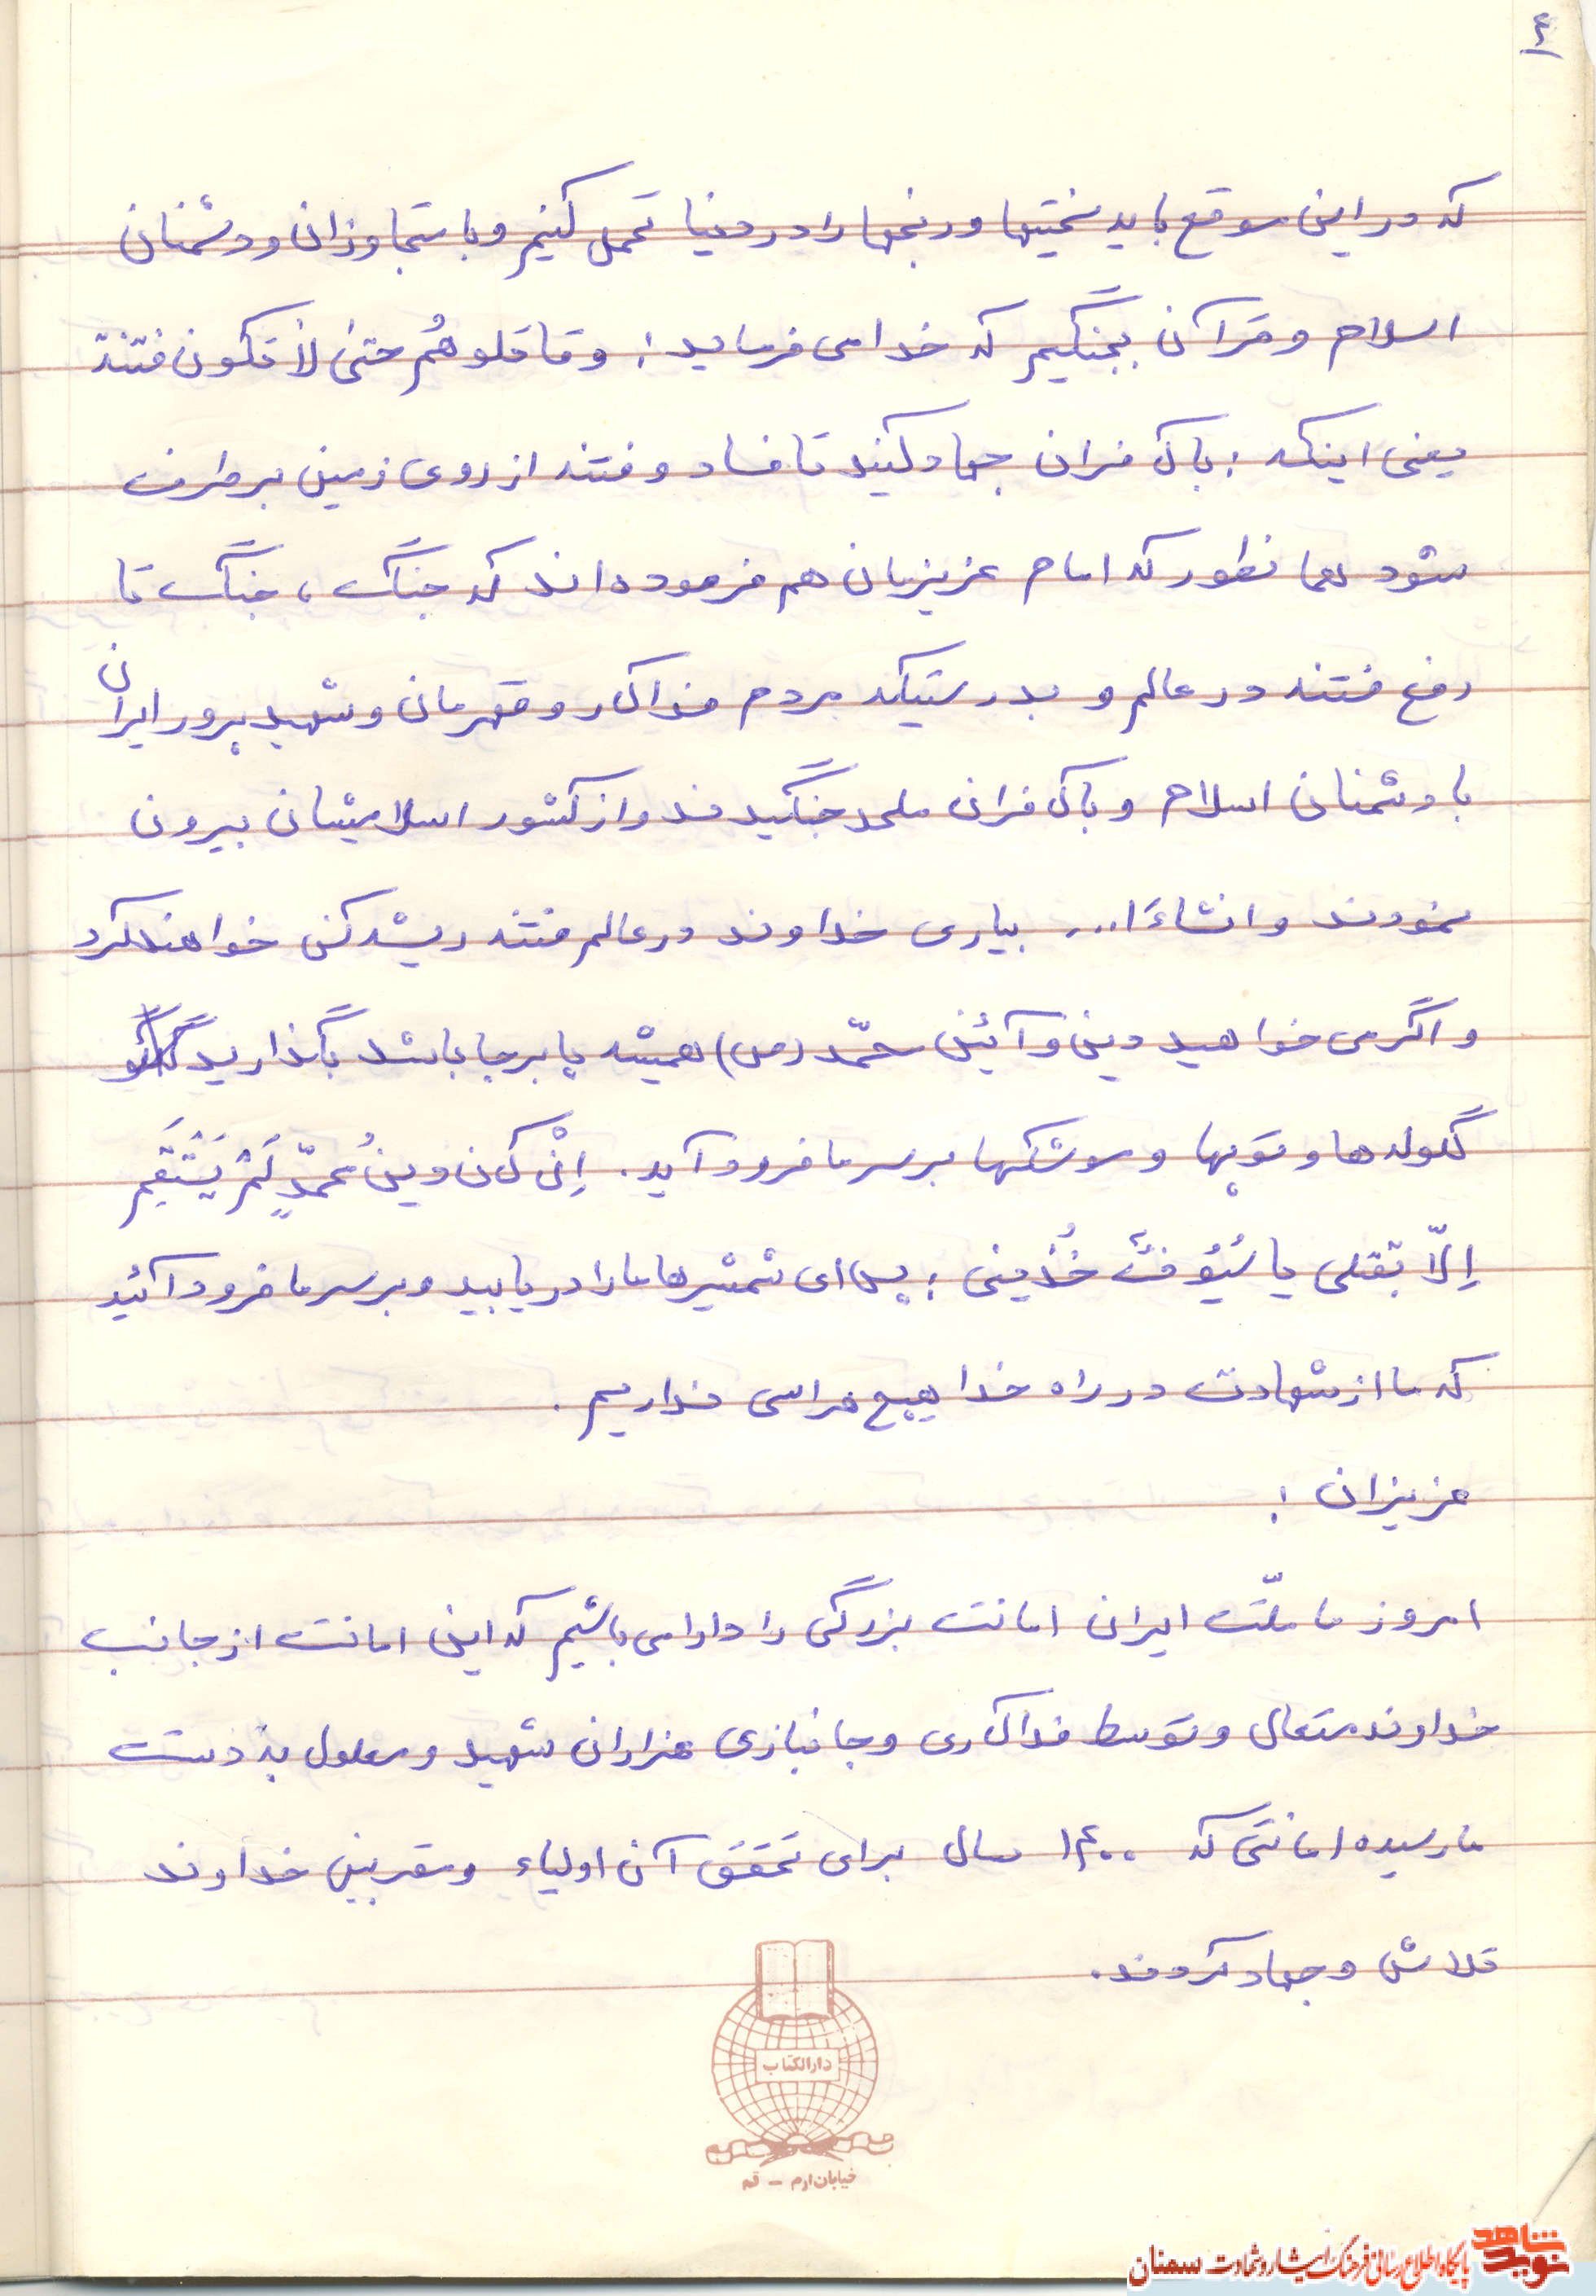 ۴
که در این موقع باید سختیها و رنجها را در دنیا تحمل کنیم و با متجاوزان و دشمنان
اسلام و قرآن بجنگیم که خدا می فرماید: و قاتلوهُم حتیٰ لاٰ تکون فتنة
یعنی اینکه: با کافران جهاد کنید تا فساد و فتنه از روی زمین برطرف
شود همانطور که امام عزیزمان هم فرموده اند که جنگ، جنگ تا
رفع فتنه در عالم و بدرستیکه مردم فداکار و قهرمان و شهید پرور ایران
با دشمنان اسلام و با کافران ملحد جنگیدند و از کشور اسلامیشان بیرون
نمودند و انشاءَا... بیاری خداوند در عالم فتنه ریشه کنی خواهند کرد
و اگر می خواهید دین و آئین محمّد (ص) همیشه پا برجا باشد بگذارید
گلوله ها و توپها و موشکها بر سر ما فرود آید. اِنْ کان دینُ محمّدٍ لَمْ یَسْتَقِم
اِلّا بقتلی یا سُیُوفُ خُذینی: پس ای شمشیرها ما را دریابید و بر سر ما فرود آئید
که ما از شهادت در راه خدا هیچ هراسی نداریم.
عزیزان:
امروز ما ملّت ایران امانت بزرگی را دارا می باشیم که این امانت از جانب
خداوند متعال و توسط فداکاری و جانبازی هزاران شهید و معلول به دست
ما رسیده امانتی که ۱۴۰۰ سال برای تحقق آن اولیاء و مقربین خداوند
تلاش و جهاد کردند.
دارالکتاب
خیابان ارم - قم
نوید شاهد
پایگاه اطلاع رسانی فرهنگ ایثار و شهادت سمنان